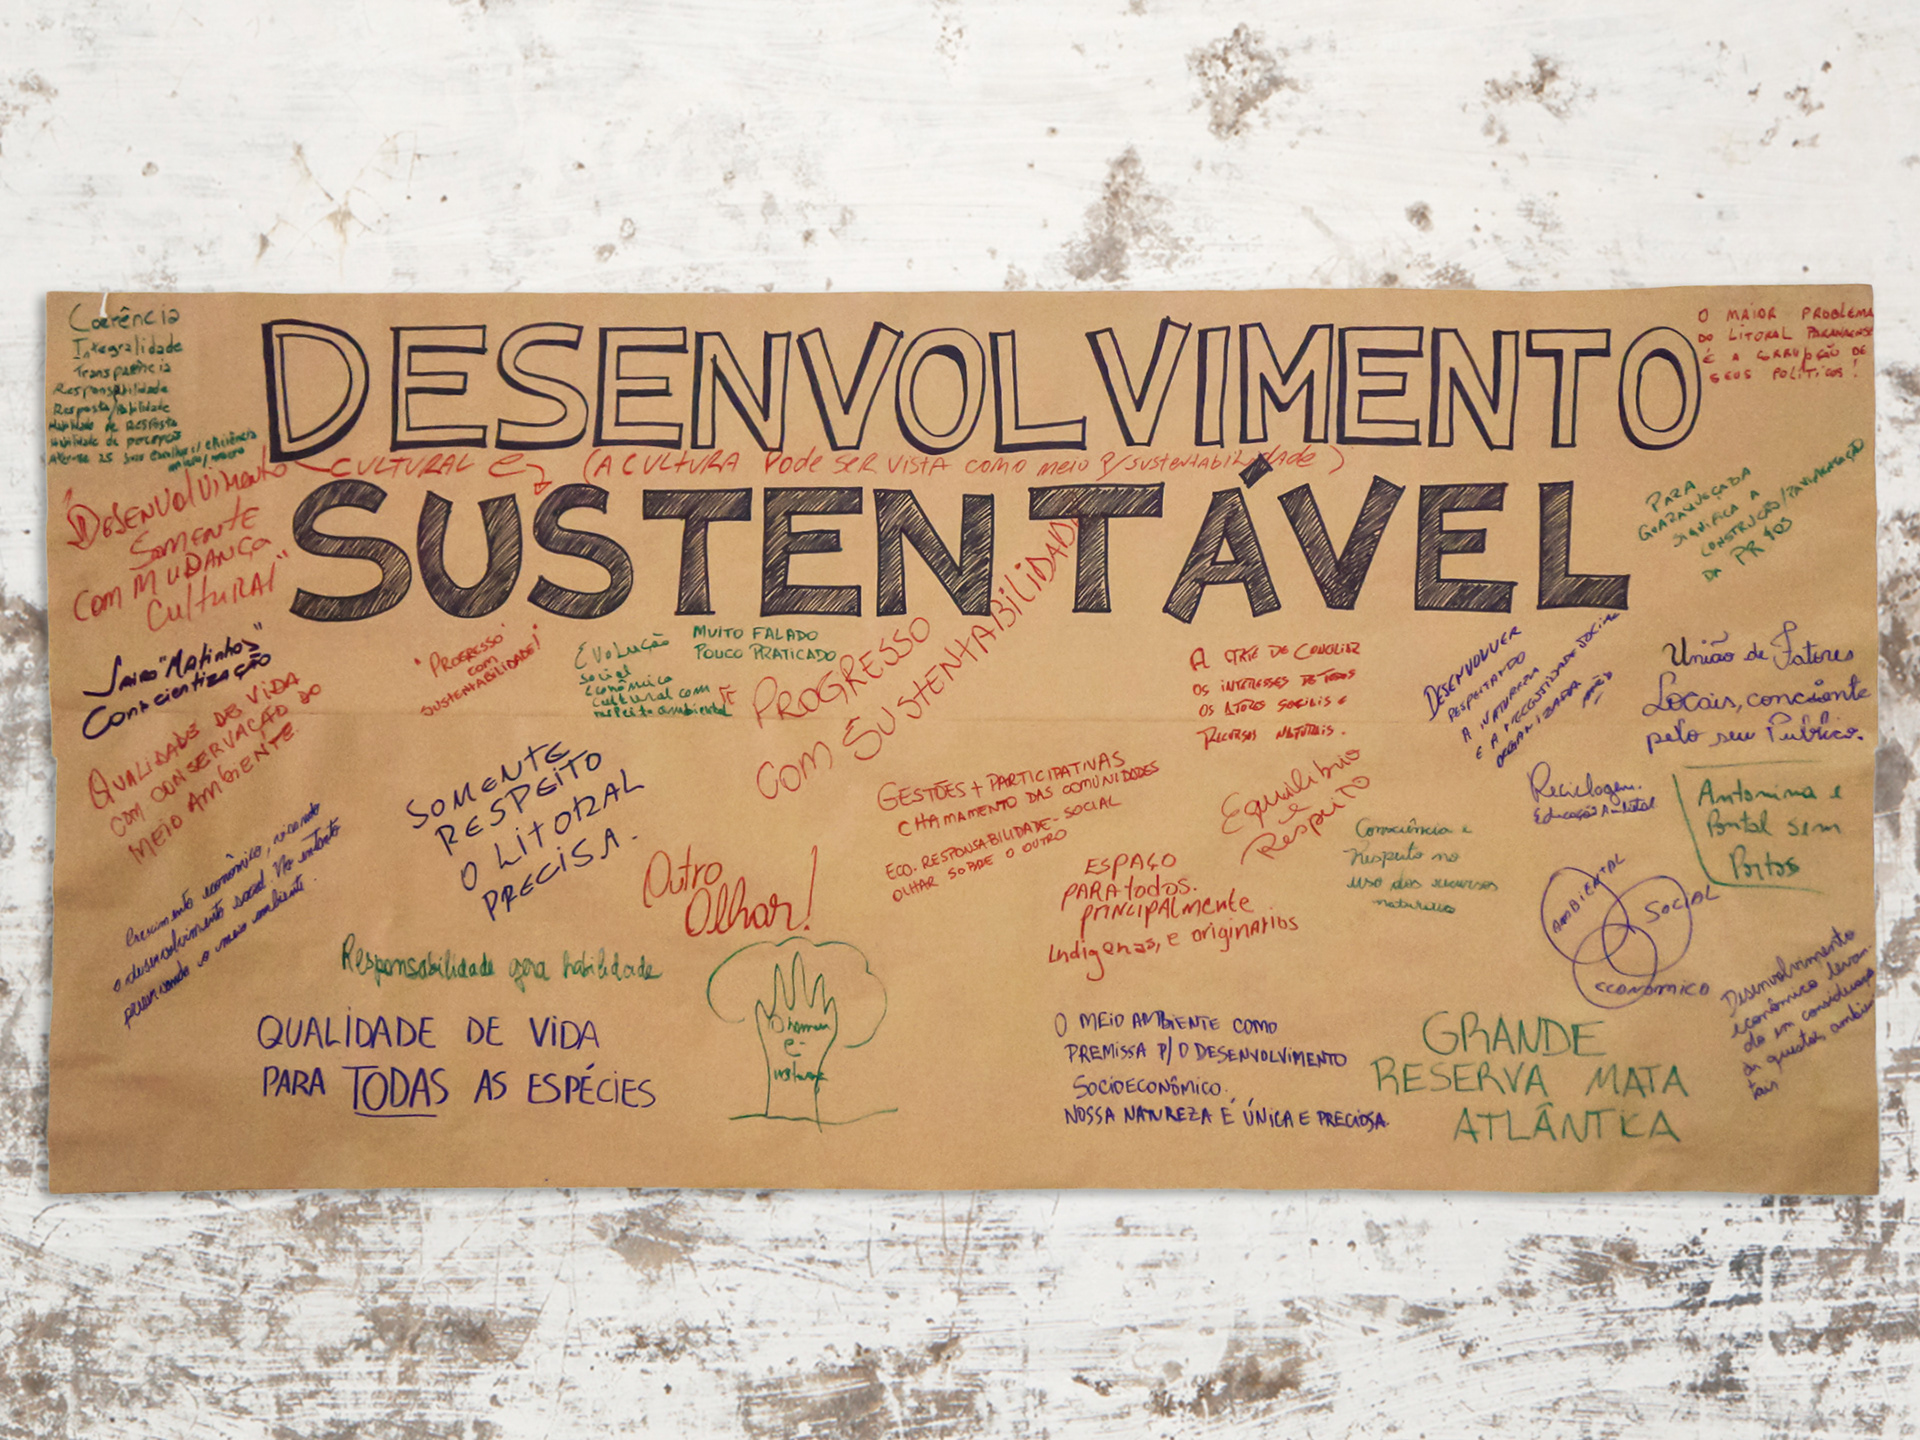 DESENVOLVIMENTO
SUSTENTÁVEL
Coerência
Integralidade
Transparência
Responsabilidade
Resposta/habilidade
Habilidade de RESPosta
Habilidade de percepção
eficiência
micro/macro
O MAIOR PROBLEMA
DO LITORAL PARANAENSE
É A CORRUPÇÃO DE
SEUS POLÍTICOS!
"DESENVOLVIMENTO
SOMENTE
COM MUDANÇA
CULTURAL"
CULTURAL E
(A CULTURA Pode SER VISTA como meio P/ sustentabilidade)
PARA
GUARAQUEÇABA
SIGNIFICA A
CONSTRUÇÃO/PAVIMENTAÇÃO
DA PR 405
Jairo "Matinhos"
Conscientização
QUALIDADE DE VIDA
COM CONSERVAÇÃO DO
MEIO AMBIENTE.
"PROGRESSO
com
SUSTENTABILIDADE!
Evolução
Social
Econômica
Cultural com
respeito ambiental
MUITO FALADO
POUCO PRATICADO
PROGRESSO
COM SUSTENTABILIDADE
A ARTE DE CONCILIAR
OS INTERESSES DE TODOS
OS ATORES SOCIAIS E
RECURSOS NATURAIS.
DESENVOLVER
RESPEITANDO
A NATUREZA
E A NECESSIDADE SOCIAL
ORGANIZADA
União de Fatores
Locais, conciente
pelo seu Público.
SOMENTE
RESPEITO
O LITORAL
PRECISA.
GESTÕES + PARTICIPATIVAS
CHAMAMENTO DAS COMUNIDADES
ECO. RESPONSABILIDADE - SOCIAL
OLHAR SOBRE O OUTRO
Equilíbrio
e
Respeito
Consciência e
Respeito no
uso dos recursos
naturais
Reciclagem.
Educação Ambiental
Antonina e
Pontal sem
Portos
Crescimento econômico, visando
o desenvolvimento social. No entanto
preservando o meio ambiente.
Outro
Olhar!
ESPAÇO
PARA todos.
principalmente
Indígenas, e originários
AMBIENTAL
SOCIAL
ECONOMICO
Responsabilidade gera habilidade
O homem
é
Desenvolvimento
econômico levan-
do em consideração
as questões ambien
tais
QUALIDADE DE VIDA
PARA TODAS AS ESPÉCIES
O MEIO AMBIENTE COMO
PREMISSA P/ O DESENVOLVIMENTO
SOCIOECONÔMICO.
NOSSA NATUREZA É ÚNICA E PRECIOSA.
GRANDE
RESERVA MATA
ATLÂNTICA